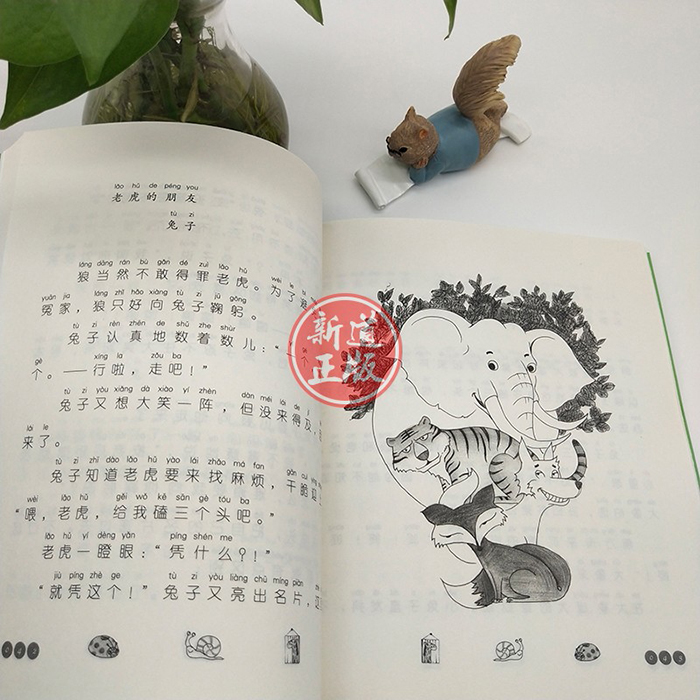 lǎo hǔ de péng you
老虎的朋友
tù zi
兔子
láng dāng rán bù gǎn dé zuì lǎo hǔ wèi le
狼当然不敢得罪老虎。为了
yuān jia láng zhǐ hǎo xiàng tù zi jū gōng
冤家，狼只好向兔子鞠躬。
tù zi rèn zhēn de shǔ zhe shùr
兔子认真地数着数儿：“
gè xíng la zǒu ba
个。——行啦，走吧！”
tù zi yòu xiǎng dà xiào yí zhèn dàn méi lái de jí
兔子又想大笑一阵，但没来得及，
lái le
来了。
tù zi zhī dào lǎo hǔ yào lái zhǎo má fan gān cuì
兔子知道老虎要来找麻烦，干脆迎
wèi lǎo hǔ gěi wǒ kē sān gè tóu ba
“喂，老虎，给我磕三个头吧。”
lǎo hǔ yí dèng yǎn píng shén me
老虎一瞪眼：“凭什么？！”
jiù píng zhè ge tù zi yòu liàng chū míng piàn
“就凭这个！”兔子又亮出名片，
新道
正版